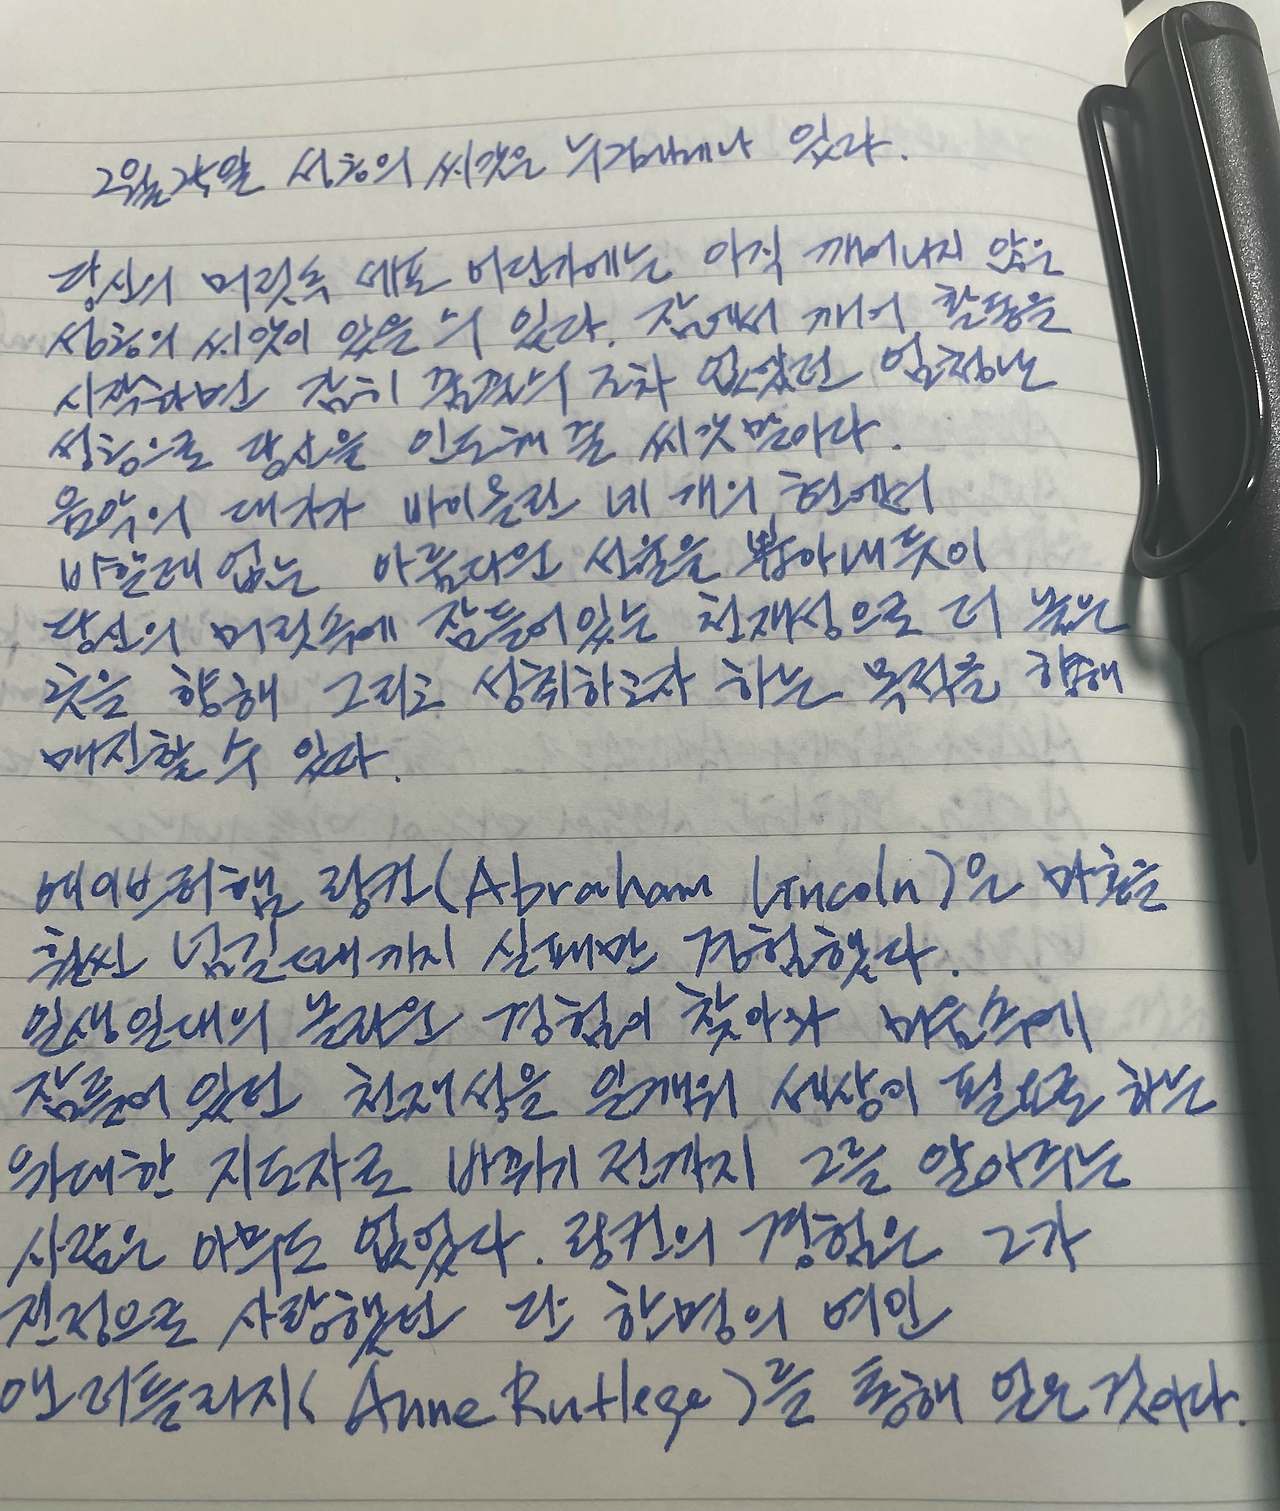 2월24일 성공의 씨앗은 누구에게나 있다.
당신의 머릿속 세포 어딘가에는 아직 깨어나지 않은
성공의 씨앗이 있을 수 있다. 잠에서 깨어 활동을
시작하면 감히 꿈꿀 수 조차 없었던 엄청난
성공으로 당신을 인도해 줄 씨앗 말이다.
음악의 대가가 바이올린 네 개의 현에서
비할데 없는 아름다운 선율을 뽑아내듯이
당신의 머릿속에 잠들어있는 천재성으로 더 높은
곳을 향해 그리고 성취하고자 하는 목적을 향해
매진할 수 있다.
에이브러햄 링컨(Abraham Lincoln)은 마흔을
훨씬 넘길때까지 실패만 경험했다.
일생일대의 놀라운 경험이 찾아와 마음속에
잠들어 있던 천재성을 일깨워 세상이 필요로 하는
위대한 지도자로 바뀌기 전까지 그를 알아주는
사람은 아무도 없었다. 링컨의 경험은 그가
진정으로 사랑했던 단 한명의 여인
앤 러틀리지(Anne Rutlege)를 통해 얻은것이다.